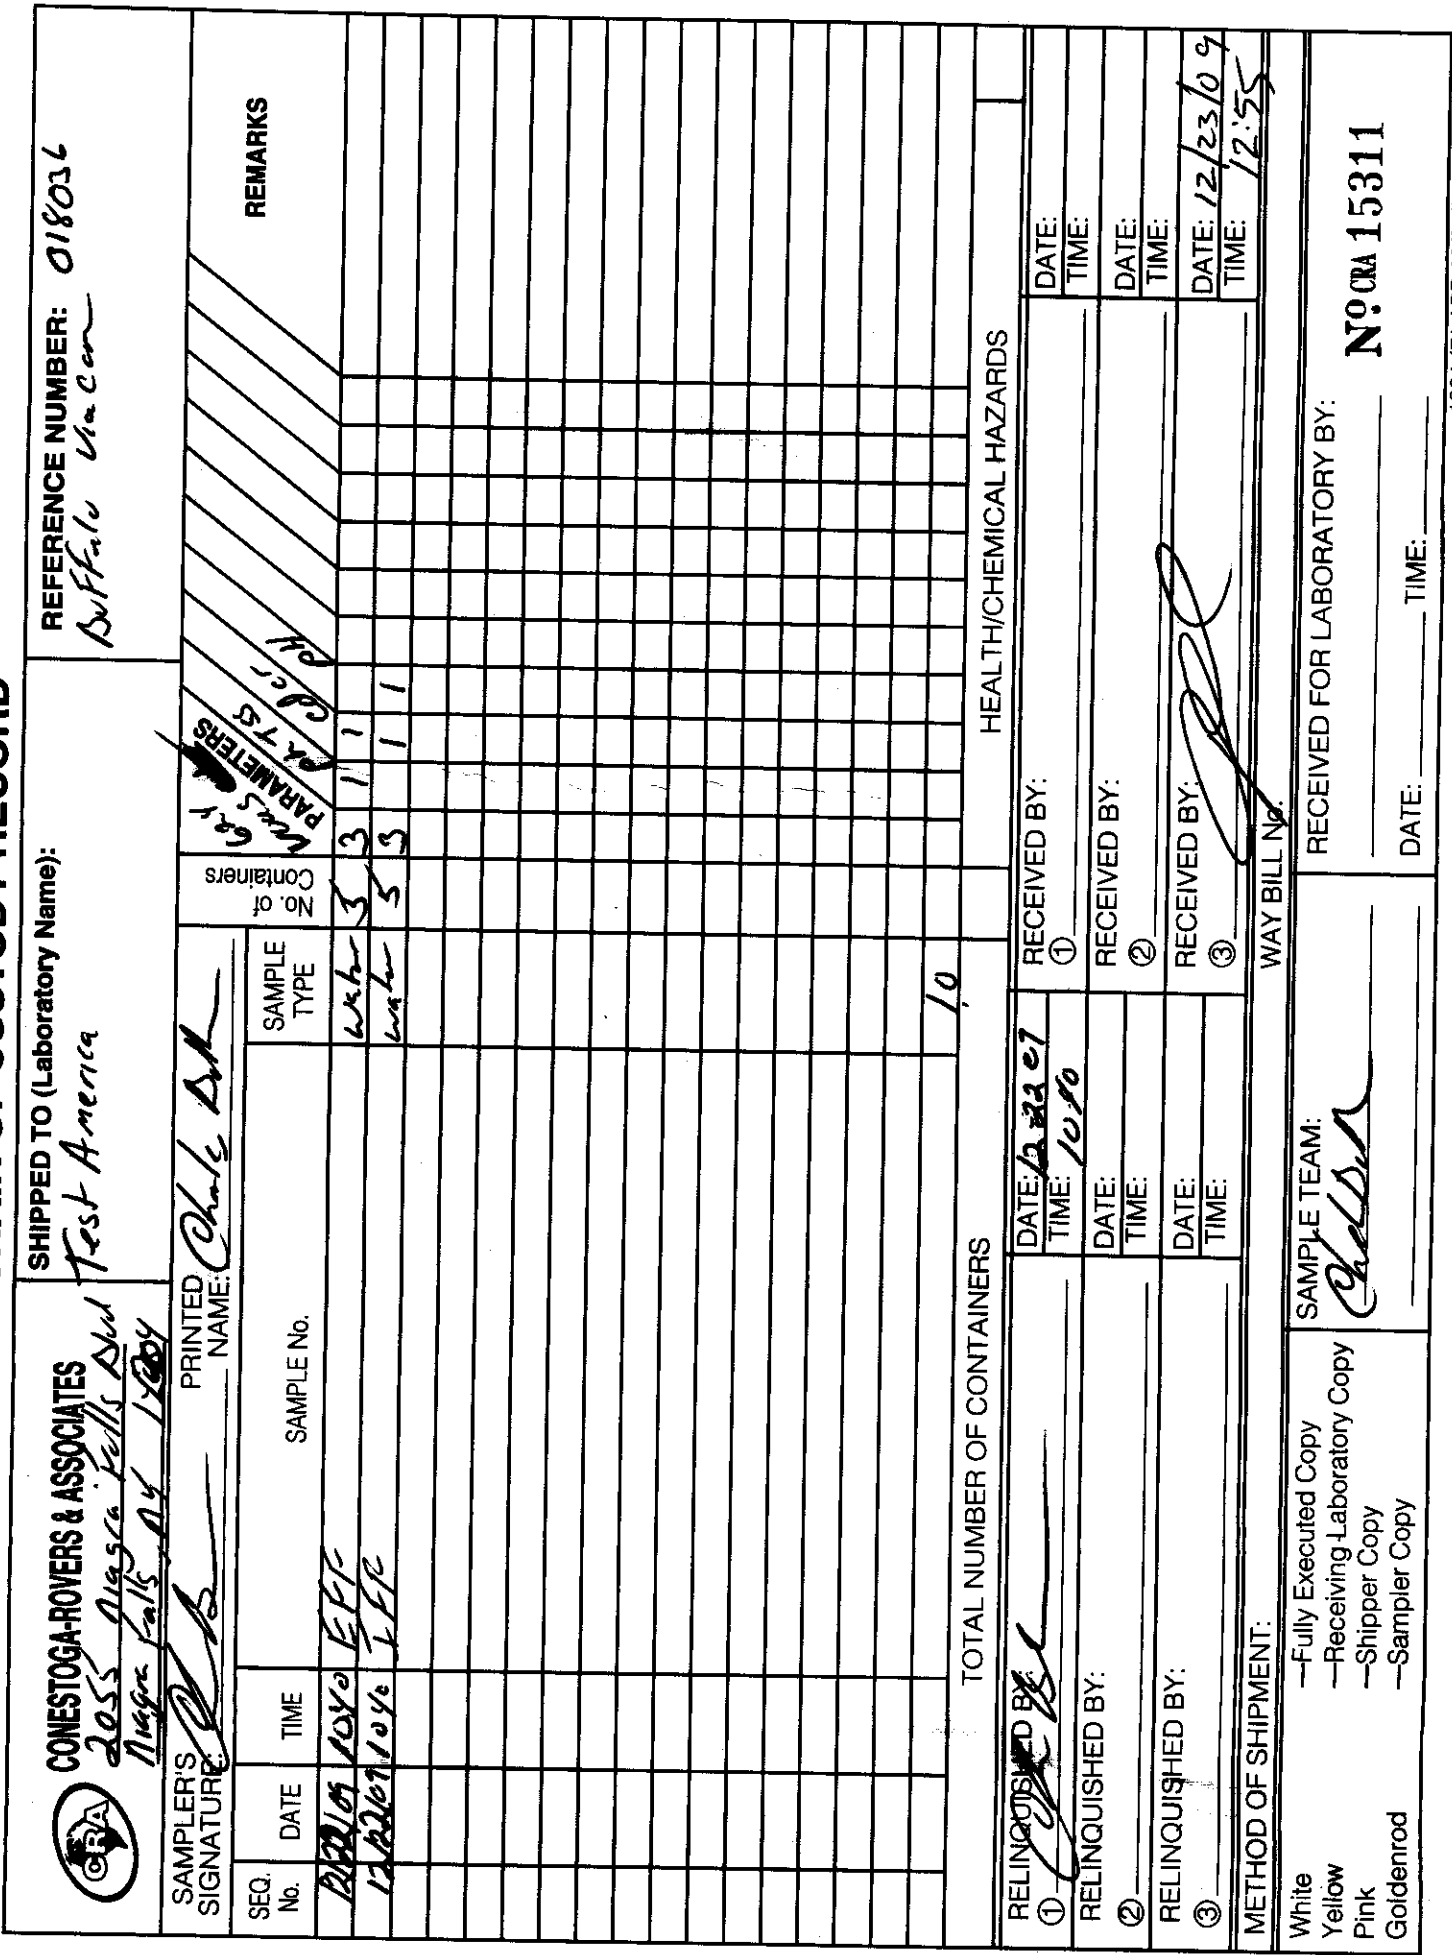 CHAIN OF CUSTODY RECORD
CRA
CONESTOGA-ROVERS & ASSOCIATES
2055 Niagra Falls Blvd
Niagra Falls, NY
SHIPPED TO (Laboratory Name):
Test America
REFERENCE NUMBER: 018036
Buffalo Via Com
SAMPLER'S SIGNATURE:
PRINTED NAME:
SEQ. No.
DATE
TIME
SAMPLE No.
SAMPLE TYPE
No. of Containers
PARAMETERS
624
TSS
pH
REMARKS
12/22/09 1040 EFF water 5 3 1 1
12/22/09 1040 IFF water 5 3 1 1
TOTAL NUMBER OF CONTAINERS 10
HEALTH/CHEMICAL HAZARDS
RELINQUISHED BY:
①
DATE:
TIME:
RECEIVED BY:
①
DATE:
TIME:
RELINQUISHED BY:
②
DATE:
TIME:
RECEIVED BY:
②
DATE:
TIME:
RELINQUISHED BY:
③
DATE:
TIME:
RECEIVED BY:
③
DATE: 12/23/09
TIME: 12:55
METHOD OF SHIPMENT:
WAY BILL No.
White —Fully Executed Copy
Yellow —Receiving Laboratory Copy
Pink —Shipper Copy
Goldenrod —Sampler Copy
SAMPLE TEAM:
RECEIVED FOR LABORATORY BY:
DATE: TIME:
Nº CRA 15311